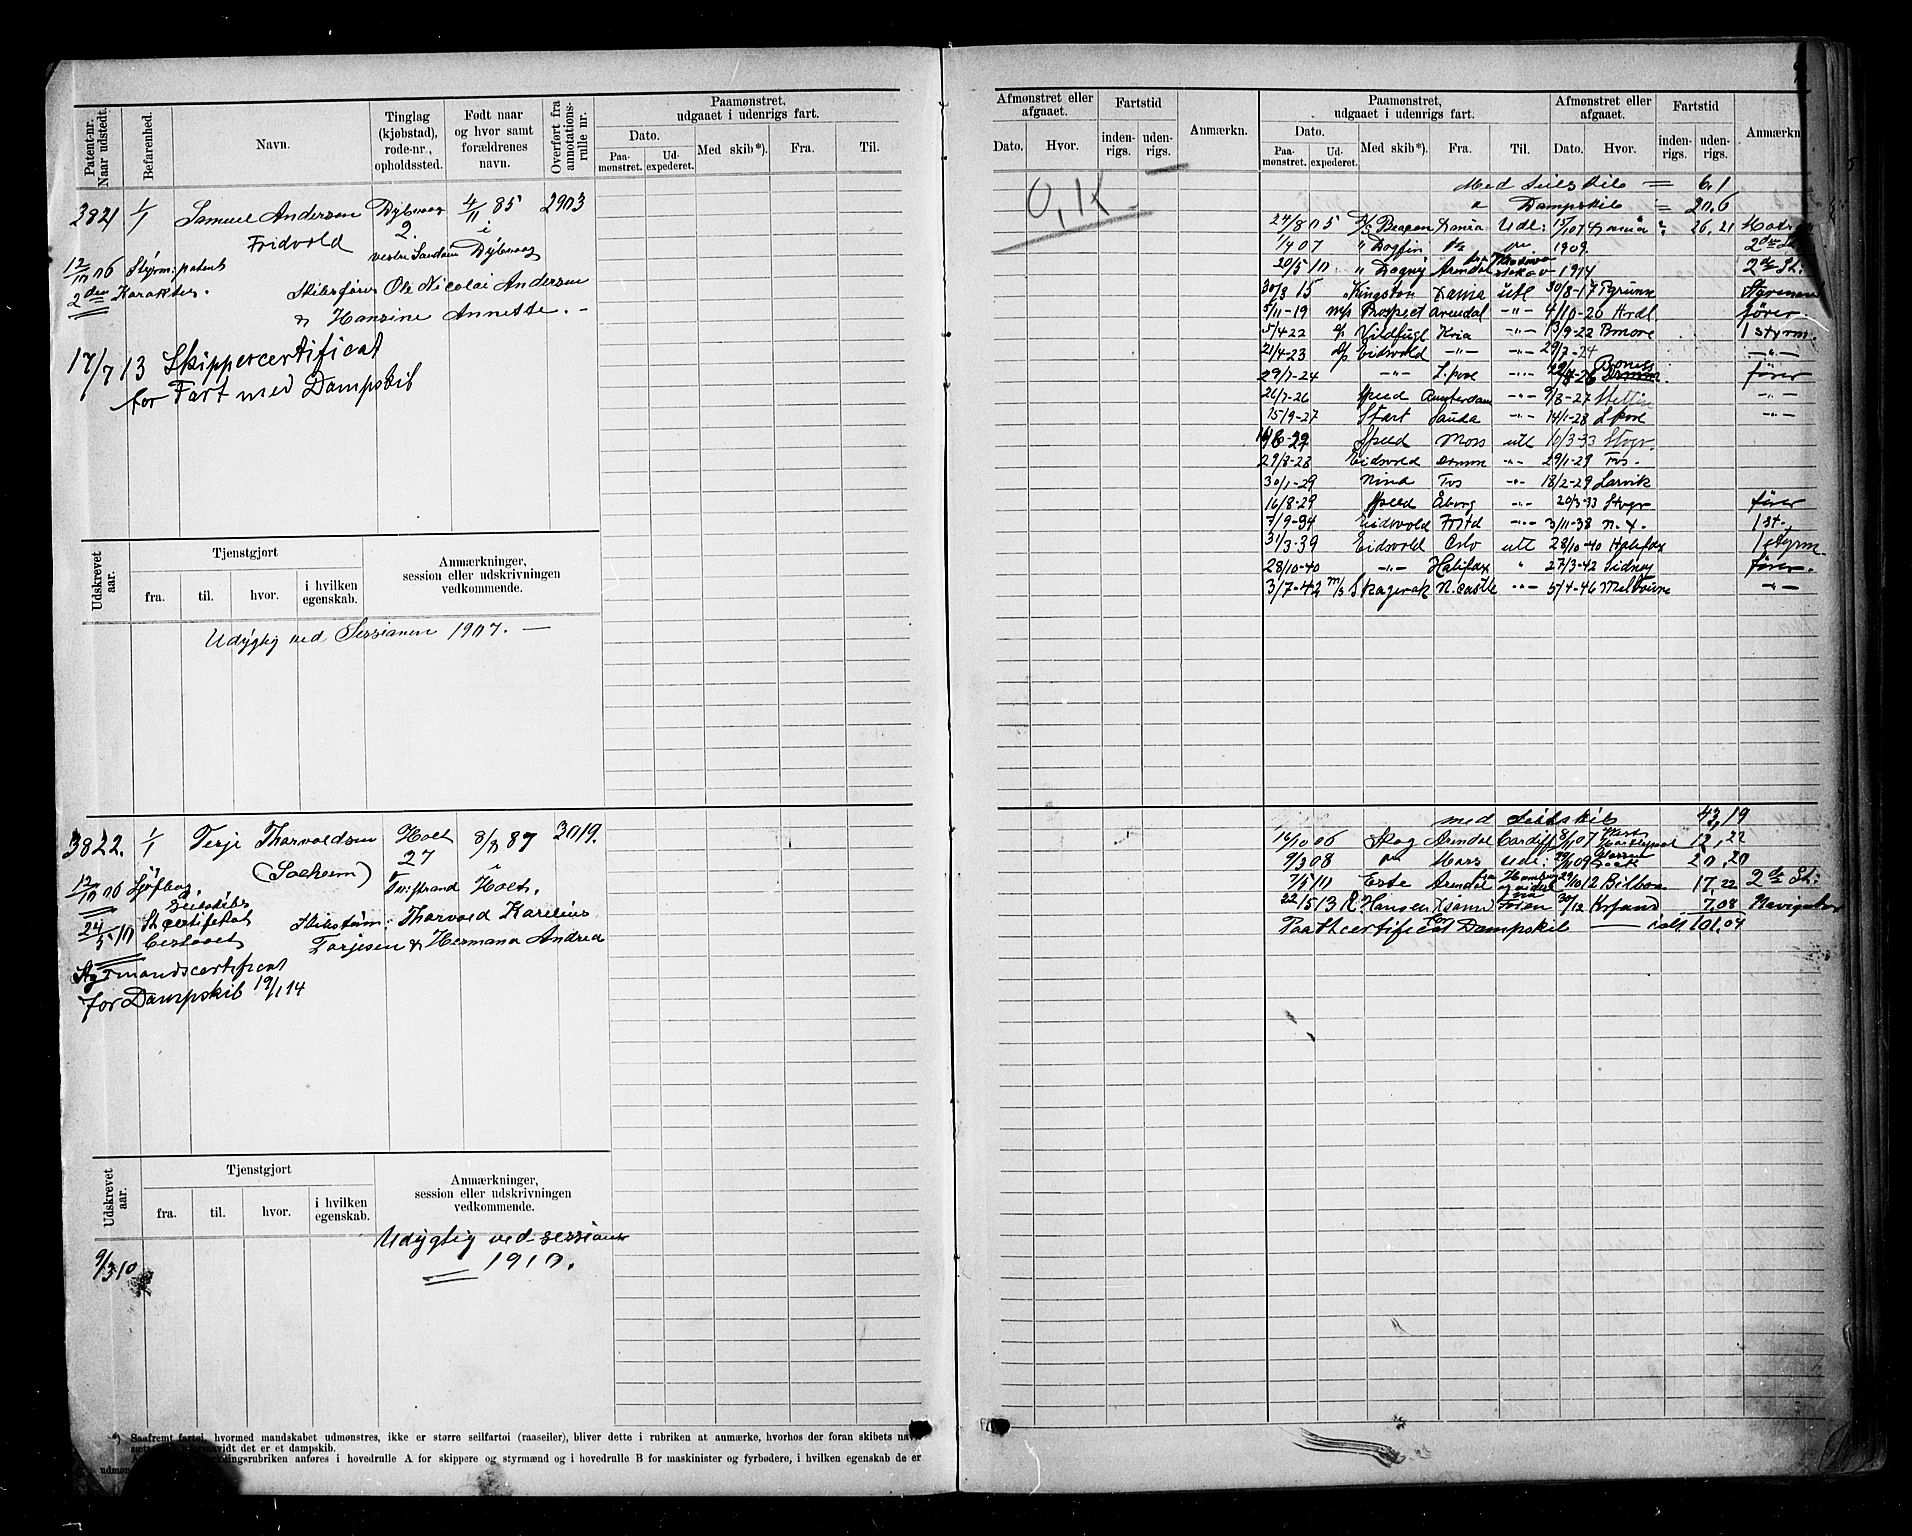 Patent-nr. Naar udstedt.
Befarenhed.
Navn.
Tinglag (kjøbstad), rode-nr., opholdssted.
Født naar og hvor samt forældrenes navn.
Overført fra annotations-rulle nr.
Paamønstret, udgaaet i udenrigs fart.
Dato.
Paa-mønstret.
Ud-expederet.
Med skib*).
Fra.
Til.
3821 1/1 Samuel Andersen Dybvaag 4/11 85 2903
Fridvold 2. i
vestre Sandøen Dybvaag
12/11 06 Styrm: patent
2den Karakter.
Skibsfører Ole Nicolai Andersen
& Hansine Annette. -
17/7 13 Skippercertificat
for Fart med Dampskib
Udskrevet aar.
Tjenstgjort
fra.
til.
hvor.
i hvilken egenskab.
Anmærkninger, session eller udskrivningen vedkommende.
Udygtig ved Sessionen 1907. —
3822. 1/1 Terje Thorvaldsen Holt 8/7 87 3019.
27 i
Holt.
24/5 10 St. certifikat
Thorvald Karelius
Terjesen & Hermana Andrea
Styrmandscertificat
for Dampskib 19/1 14
Udskrevet aar.
Tjenstgjort
fra.
til.
hvor.
i hvilken egenskab.
Anmærkninger, session eller udskrivningen vedkommende.
9/3 10
Udygtig ved sessionen
1910.
*) Saafremt fartøi, hvormed mandskabet udmønstres, ikke er større seilfartøi (raaseiler), bliver dette i rubriken at anmærke, hvorhos der foran skibets navn
det er et dampskib.
anføres i hovedrulle A for skippere og styrmænd og i hovedrulle B for maskinister og fyrbødere, i hvilken egenskab de er
Afmønstret eller afgaaet.
Dato.
Hvor.
Fartstid
inden-rigs.
uden-rigs.
Anmærkn.
Paamønstret, udgaaet i udenrigs fart.
Dato.
Paa-mønstret.
Ud-expederet.
Med skib*).
Fra.
Til.
Afmønstret eller afgaaet.
Dato.
Hvor.
Fartstid
inden-rigs.
uden-rigs.
Anmærkn.
O,K.
Med Seilskib = 6,1
" Dampskib = 20,6
24/8 05 Beacon Xania Udl: 26,21
1/4 07 " Dogfin do do 1909. 2den St.
20/5 10 " Dagny Arendal 1914 2den St.
30/3 15 Kingston Xania utl 30/8-17 Styrmand
5/11-19 Prospect Arendal -"- 4/10-20 Ardl. fører
5/4 22 Vildfugl Kria -"- 13/9-22 Bmore 1 styrm.
21/4-23 d/s Eidsvold -"- -"- 29/7-24 -"-
29/7-24 -"- L.pool -"- fører
26/7-26 Speed Amsterdam -"- 9/8-27 Stettin -"-
15/9-27 Start Sauda -"- 14/1-28 L.pool -"-
Speed Moss utl 10/3-33 Stvgr.
29/8-28 Eidsvold Drmn -"- 29/1-29 Tvs.
30/1-29 Nina Tvs -"- 18/2-29 Larvik
16/8-29 Speed Åborg -"- 20/3-33 Stvgr fører
7/9-34 Eidsvold Frstd -"- 3/11-38 N.Y. 1 st.
31/3-39 Eidsvold Oslo utl 28/10-40 Halifax 1 styrm.
28/10-40 -"- Halifax " 27/3-42 Sidney fører.
3/7-42 m/s Skagerak N.castle -"- 5/4-46 Melbourne -"-
med Seilskib 43,19
16/10 06 Skog Arendal Cardiff 8/1 07 12,22
9/3 08 do Moss udl: 20,20
7/5 10 Este Arendal 29/10 12 Bilbao 17,22 2den St:
22/5 13 Hansen Xsand 30/12 Krsand 7,08 Navigatør
for Dampskib — ialt 101,04